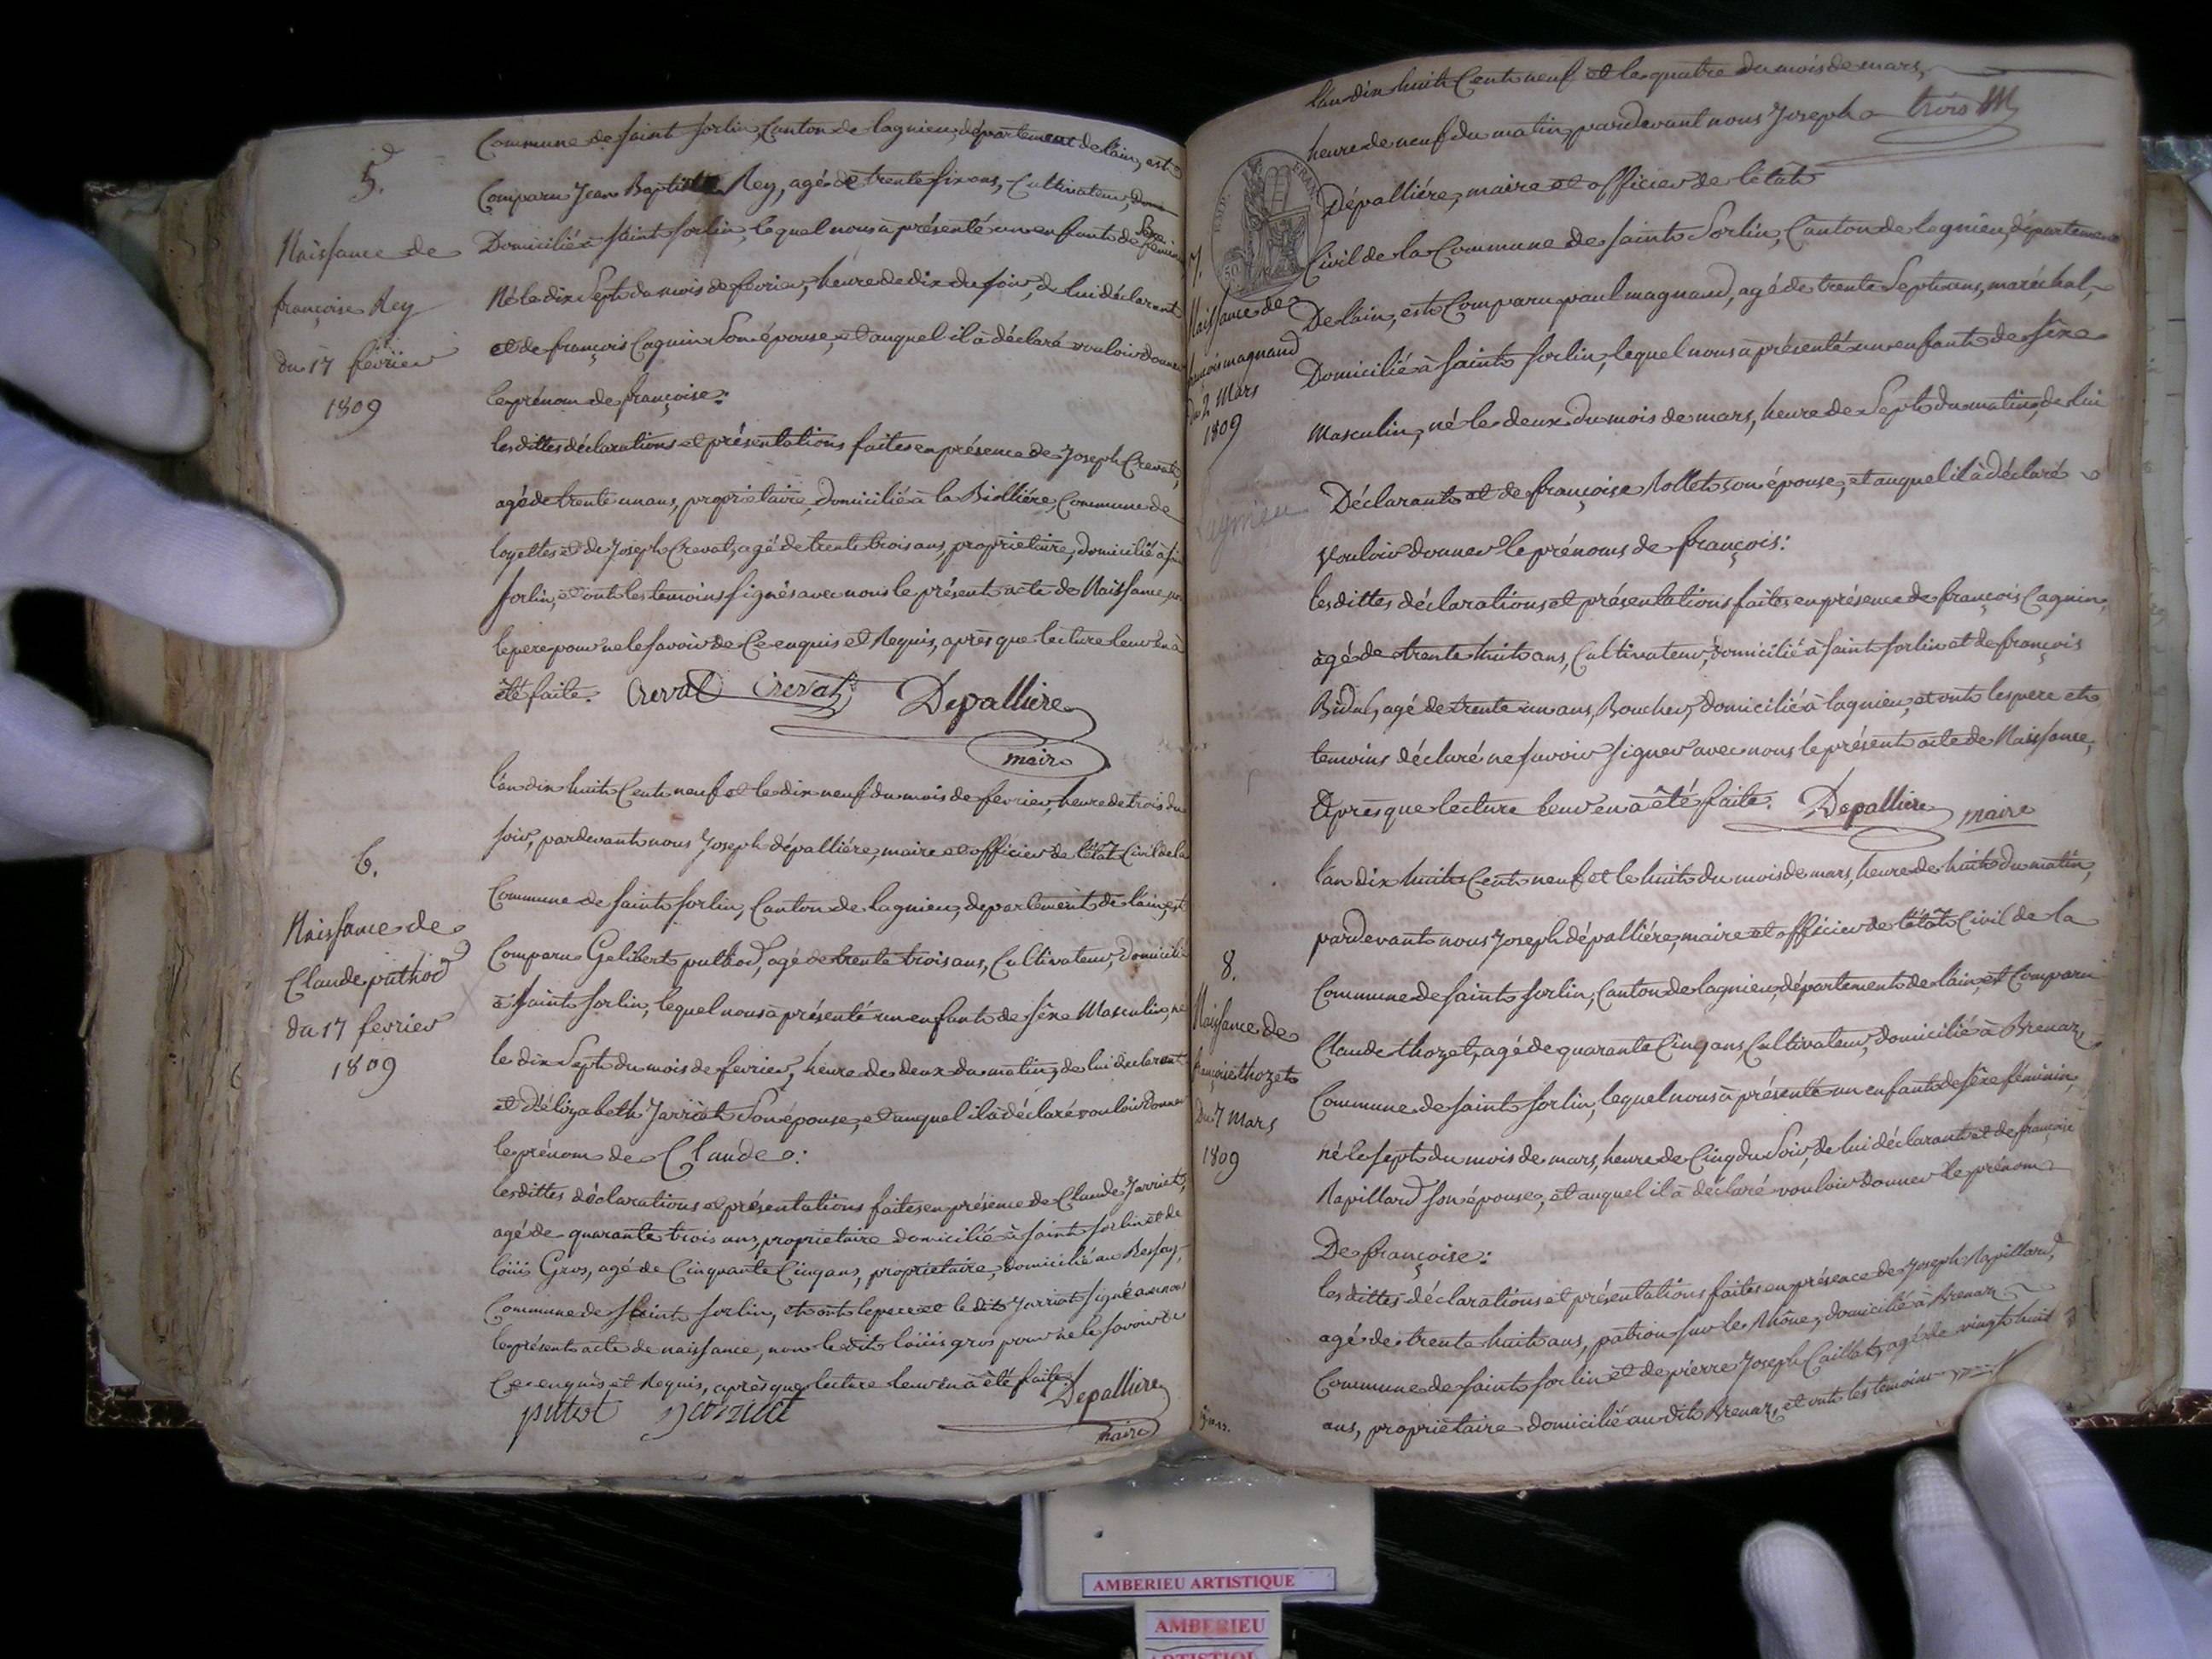 5.
Naissance de
françoise Rey
du 17 février
1809
Commune de saint Sorlin, Canton de lagnieu, département de l'ain, est
Comparu Jean Baptiste Rey, agé de trente six ans, Cultivateur,
Domicilié à saint Sorlin, lequel nous à présenté un enfant de sexe féminin
Né le dix sept du mois de février, heure de dix du soir, de lui déclarant
et de françoise Cagnin son épouse, et auquel il à déclaré vouloir donner
le prénom de françoise:
les dittes déclarations et présentations faites en présence de Joseph Crevat,
agé de trente un ans, propriétaire, domicilié à la Biollière, Commune de
loyettes et de Joseph Crevat, agé de trente trois ans, propriétaire, domicilié à
Sorlin, et ont les temoins signés avec nous le présent acte de Naissance,
le pere pour ne le savoir de Ce enquis et Requis, après que lecture leur en à
été faite. Crevat Crevat Depalliere
maire
6.
Naissance de
Claude puthod
du 17 fevrier
1809
l'an dix huit Cent neuf et le dix neuf du mois de fevrier, heure de trois du
soir, pardevant nous Joseph dépalliére, maire et officier de l'état Civil de la
Commune de saint Sorlin, Canton de lagnieu, departement de l'ain, est
Comparu Gelibert puthod, agé de trente trois ans, Cultivateur, domicilié
à saint Sorlin, lequel nous à présenté un enfant de sèxe Masculin, né
le dix Sept du mois de fevrier, heure de deux du matin, de lui déclarant
et d'élizabeth Jarriat son épouse, et auquel il à déclaré vouloir donner
le prénom de Claude:
les dittes déclarations et présentations faites en présence de Claude Jarriat,
agé de quarante trois ans, propriétaire domicilié à saint Sorlin et de
loüis Gros, agé de Cinquante Cinq ans, propriétaire, domicilié au
Commune de saint Sorlin, et ont le pere et le dit Jarriat signé avec nous
le présent acte de naissance, non le dit loüis gros pour ne le savoir de
Ce enquis et Requis, après que lecture leur en à été faite.
Depalliere
maire
l'an dix huit Cent neuf et le quatre du mois de mars,
heure de neuf du matin, pardevant nous Joseph
Dépalliére, maire et officier de l'état
7.
Naissance de
françois magnand
du 2 Mars
1809
Lagnieu
Civil de la Commune de saint Sorlin, Canton de lagnieu, département
De l'ain, est Comparu paul magnand, agé de trente Sept ans, maréchal,
Domicilié à saint Sorlin, lequel nous à présenté un enfant de sèxe
Masculin, né le deux du mois de mars, heure de Sept du matin, de lui
Déclarant et de françoise Rollet son épouse, et auquel il à déclaré
Vouloir donner le prénoms de françois:
les dittes déclarations et présentations faites en présence de françois Cagnin,
agé de trente huit ans, Cultivateur, domicilié à saint Sorlin et de françois
Bidal, agé de trente un ans, Boucher, domicilié à lagnieu, et ont les pere et
temoins déclaré ne savoir signer avec nous le présent acte de Naissance,
Après que lecture leur en à été faite. Depalliere maire
8.
Naissance de
françoise thozet
Du 7 Mars
1809
l'an dix huit Cent neuf et le huit du mois de mars, heure de huit du matin,
pardevant nous Joseph dépalliére, maire et officier de l'état Civil de la
Commune de saint Sorlin, Canton de lagnieu, département de l'ain, est Comparu
Claude thozet, agé de quarante Cinq ans, Cultivateur, domicilié à Brenaz,
Commune de saint Sorlin, lequel nous à présenté un enfant de sèxe féminin,
né le sept du mois de mars, heure de Cinq du Soir, de lui déclarant et de françoise
Rapillard son épouse, et auquel il à déclaré vouloir donner le prénom
De françoise:
les dittes déclarations et présentations faites en présence de Joseph Rapillard,
agé de trente huit ans, patron sur le Rhône, domicilié à Brenaz
Commune de saint Sorlin et de pierre Joseph Caillat, agé de vingt huit
ans, propriétaire domicilié au dit Brenaz, et ont les temoins
AMBERIEU ARTISTIQUE
AMBERIEU
ARTISTIQUE